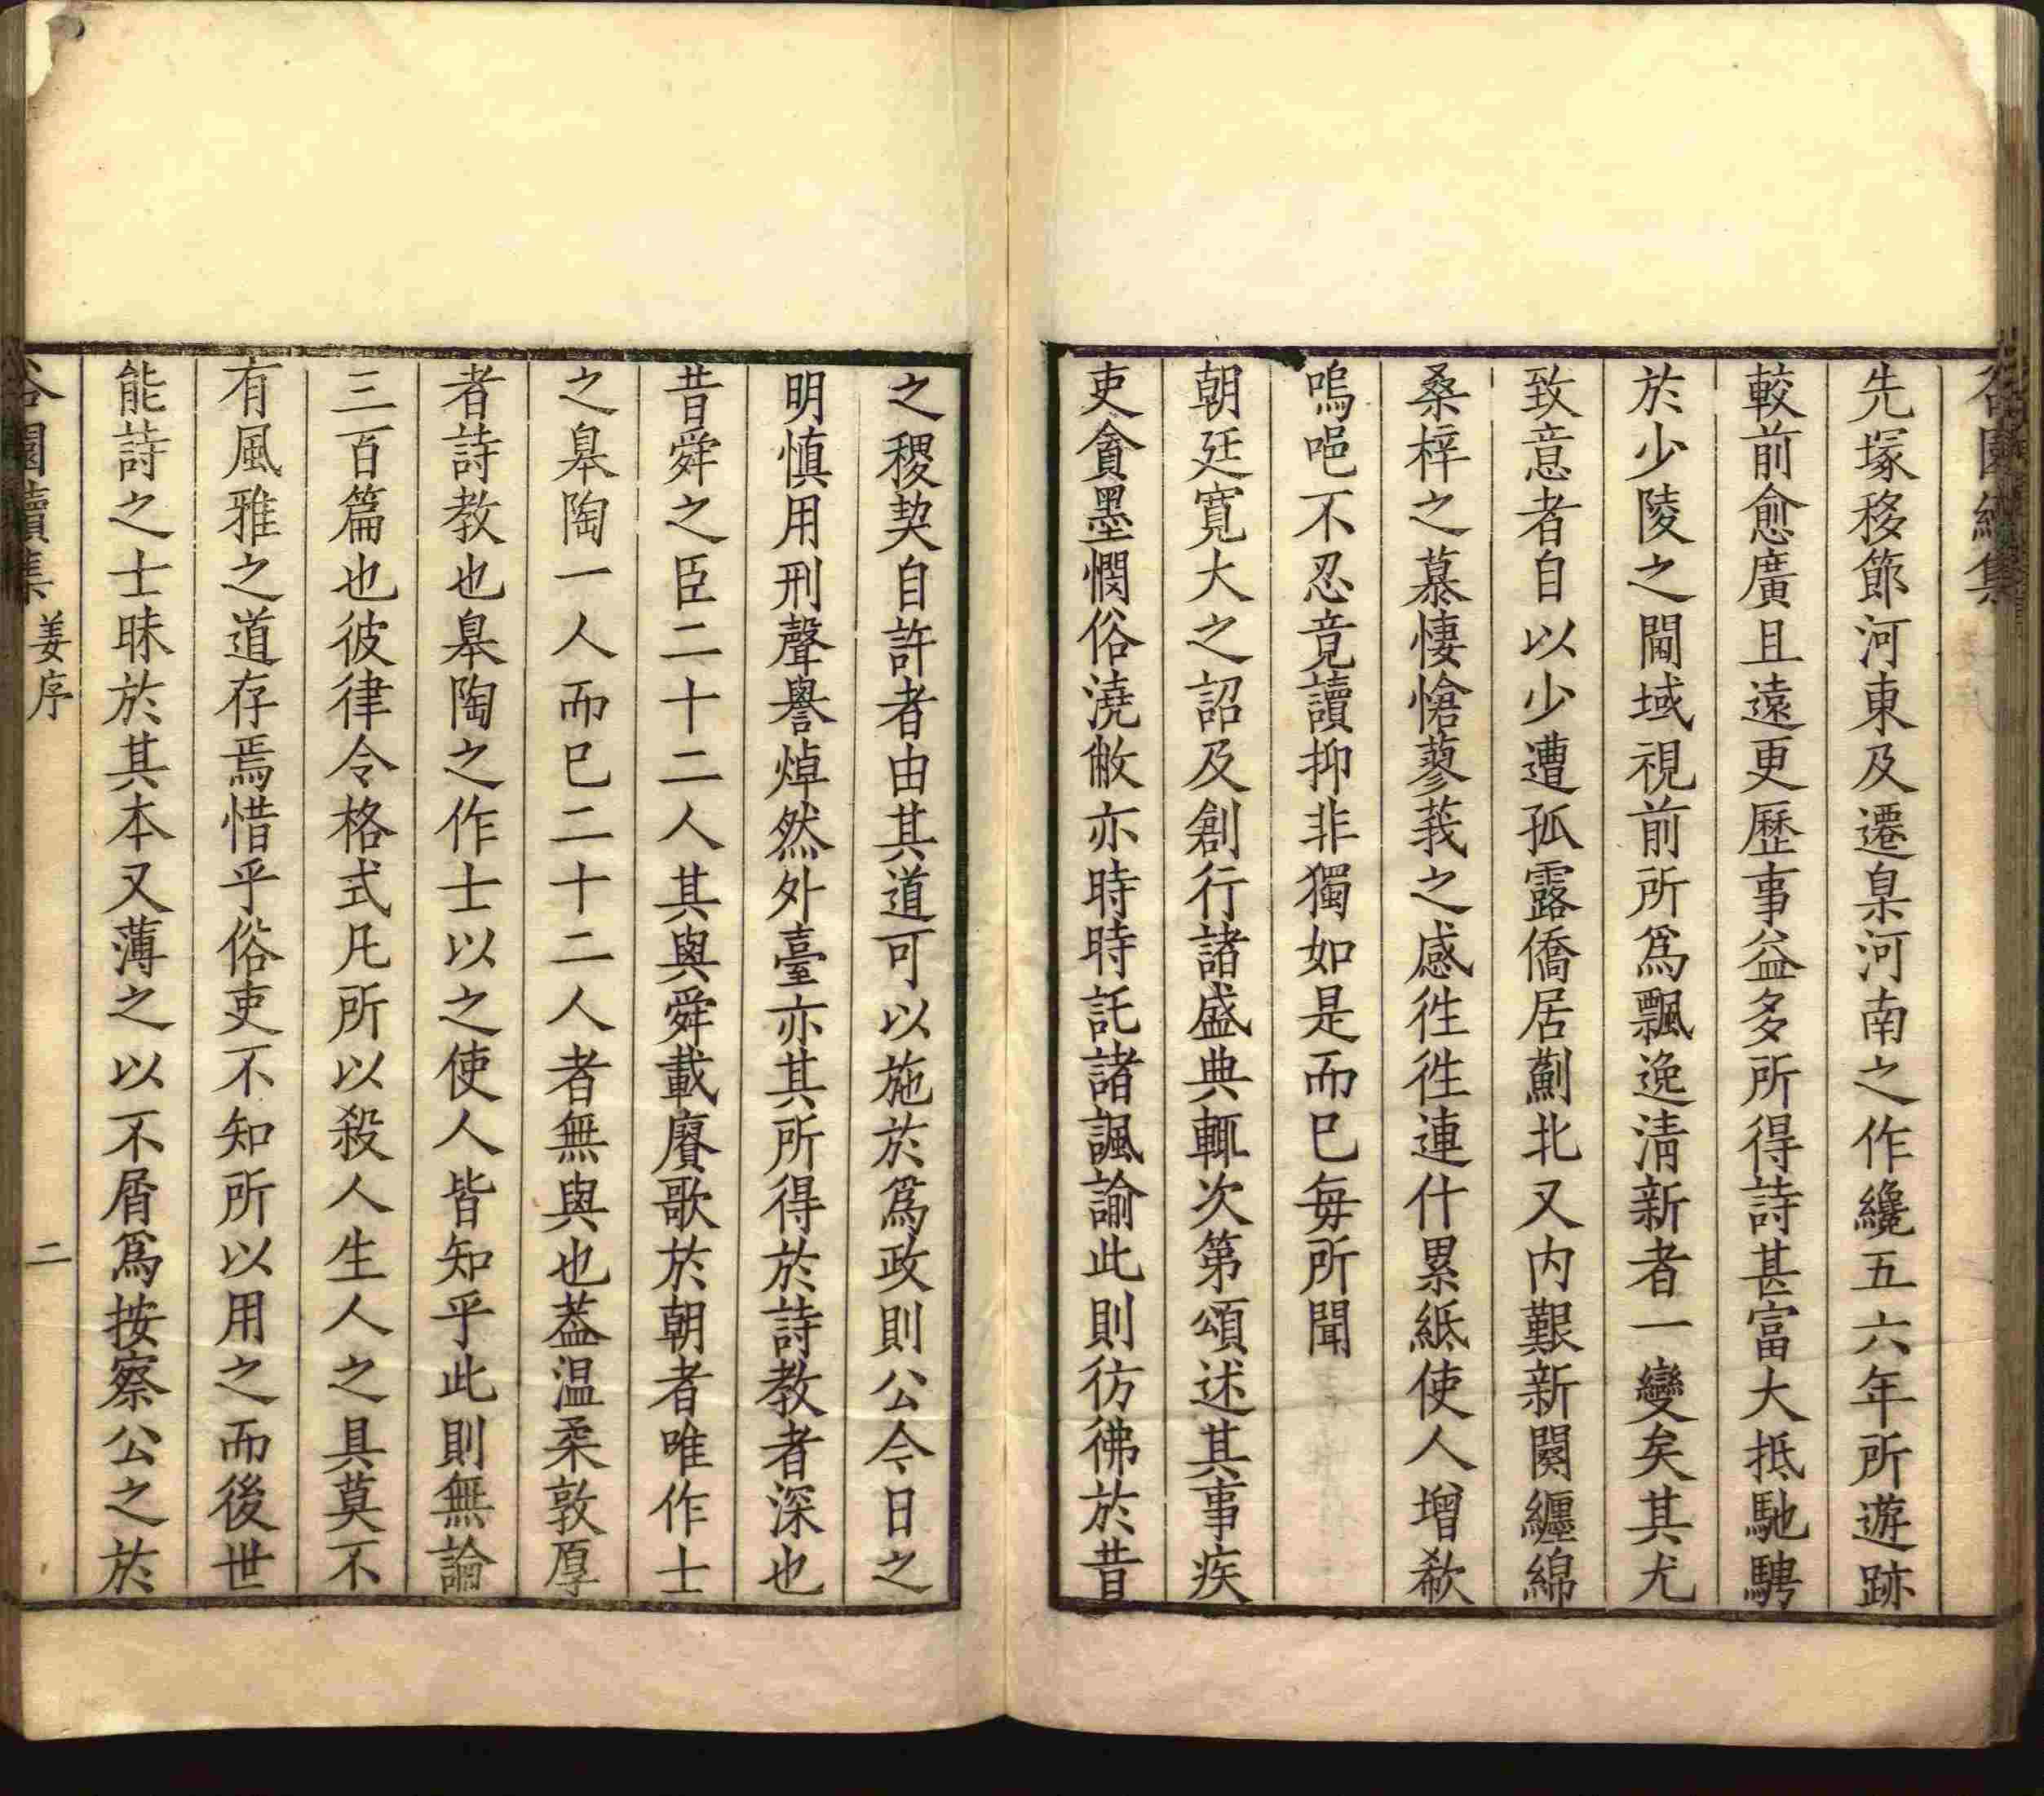 谷園續集
先塚移節河東及遷臬河南之作纔五六年所遊跡
較前愈廣且遠更歷事益多所得詩甚富大抵馳騁
於少陵之閫域視前所爲飄逸淸新者一變矣其尤
致意者自以少遭孤露僑居薊北又内艱新闋纏綿
桑梓之慕悽愴蓼莪之感徃徃連什累紙使人增欷
嗚唈不忍竟讀抑非獨如是而巳每所聞
朝廷寬大之詔及創行諸盛典輒次第頌述其事疾
吏貪墨憫俗澆敝亦時時託諸諷諭此則彷彿於昔
之稷契自許者由其道可以施於爲政則公今日之
明慎用刑聲譽焯然外臺亦其所得於詩教者深也
昔舜之臣二十二人其與舜載賡歌於朝者唯作士
之皋陶一人而巳二十二人者無與也葢温柔敦厚
者詩教也皋陶之作士以之使人皆知乎此則無論
三百篇也彼律令格式凡所以殺人生人之具莫不
有風雅之道存焉惜乎俗吏不知所以用之而後世
能詩之士昧於其本又薄之以不屑爲按察公之於
谷園續集 姜序 二